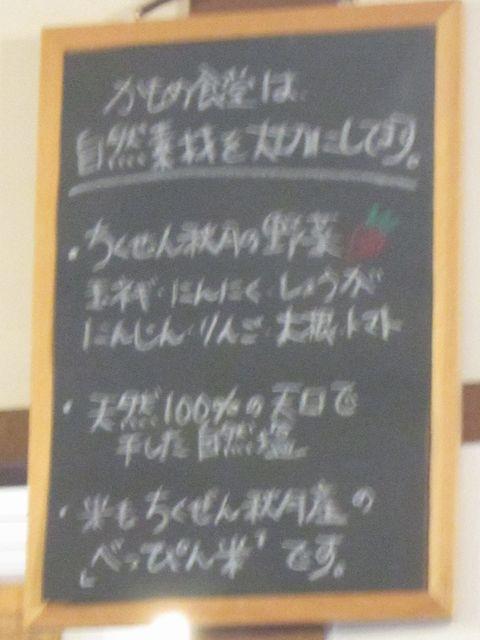 かもめ食堂は
自然素材を大切にしてます。
・ちくぜん秋月の野菜
玉ネギ・にんにく・しょうが
にんじん・りんご・大根・トマト
・天然100%の天日で
干した自然塩
・米もちくぜん秋月産の
「べっぴん米」です。